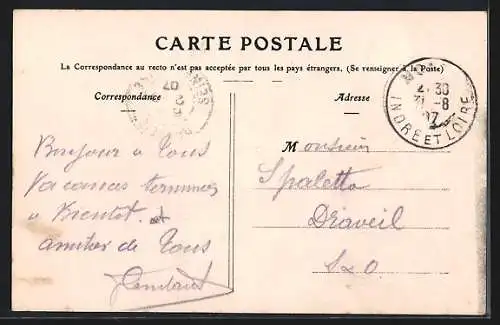 CARTE POSTALE
La Correspondance au recto n'est pas acceptée par tous les pays étrangers. (Se renseigner à la Poste)
Correspondance
Adresse
21 30
31 -8
07
INDRE ET LOIRE
Bonjour à Tous
Vacances terminées
à Bientôt. et
amitiés de Tous
Monsieur
Spaletta
Draveil
S&O.